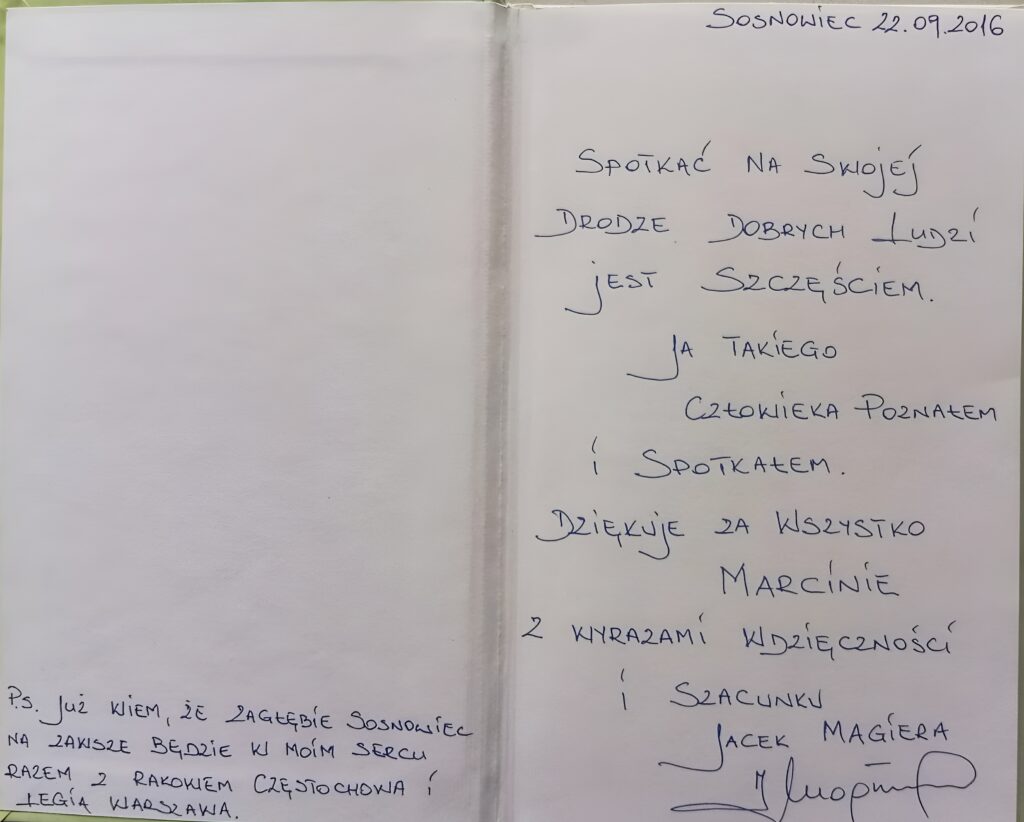 SOSNOWIEC 22.09.2016
SPOTKAĆ NA SWOJEJ
DRODZE DOBRYCH LUDZI
JEST SZCZĘŚCIEM.
JA TAKIEGO
CZŁOWIEKA POZNAŁEM
I SPOTKAŁEM.
DZIĘKUJE ZA WSZYSTKO
MARCINIE
Z WYRAZAMI WDZIĘCZNOŚCI
I SZACUNKU
JACEK MAGIERA
P.S. JUŻ WIEM, ŻE ZAGŁĘBIE SOSNOWIEC
NA ZAWSZE BĘDZIE W MOIM SERCU
RAZEM Z RAKOWEM CZĘSTOCHOWA I
LEGIĄ WARSZAWA.